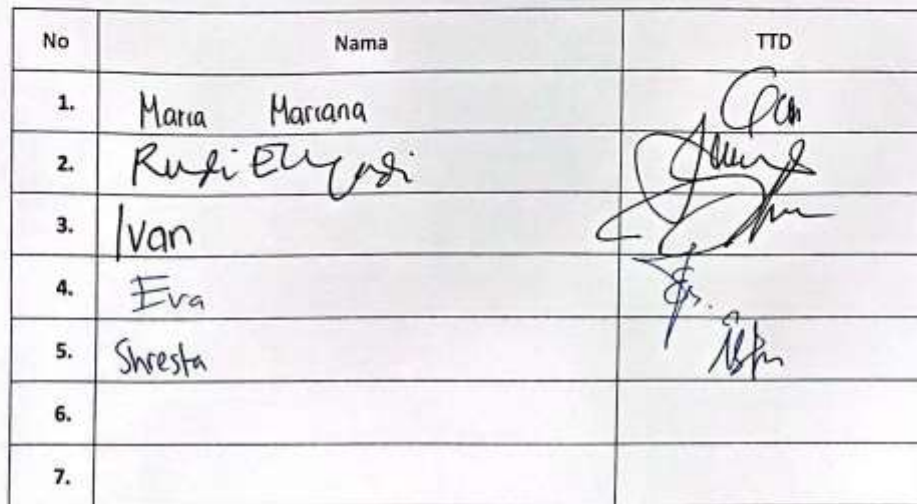 No Nama TTD
1. Maria Mariana
2. Rudi
3. Ivan
4. Eva
5. Shresta
6.
7.